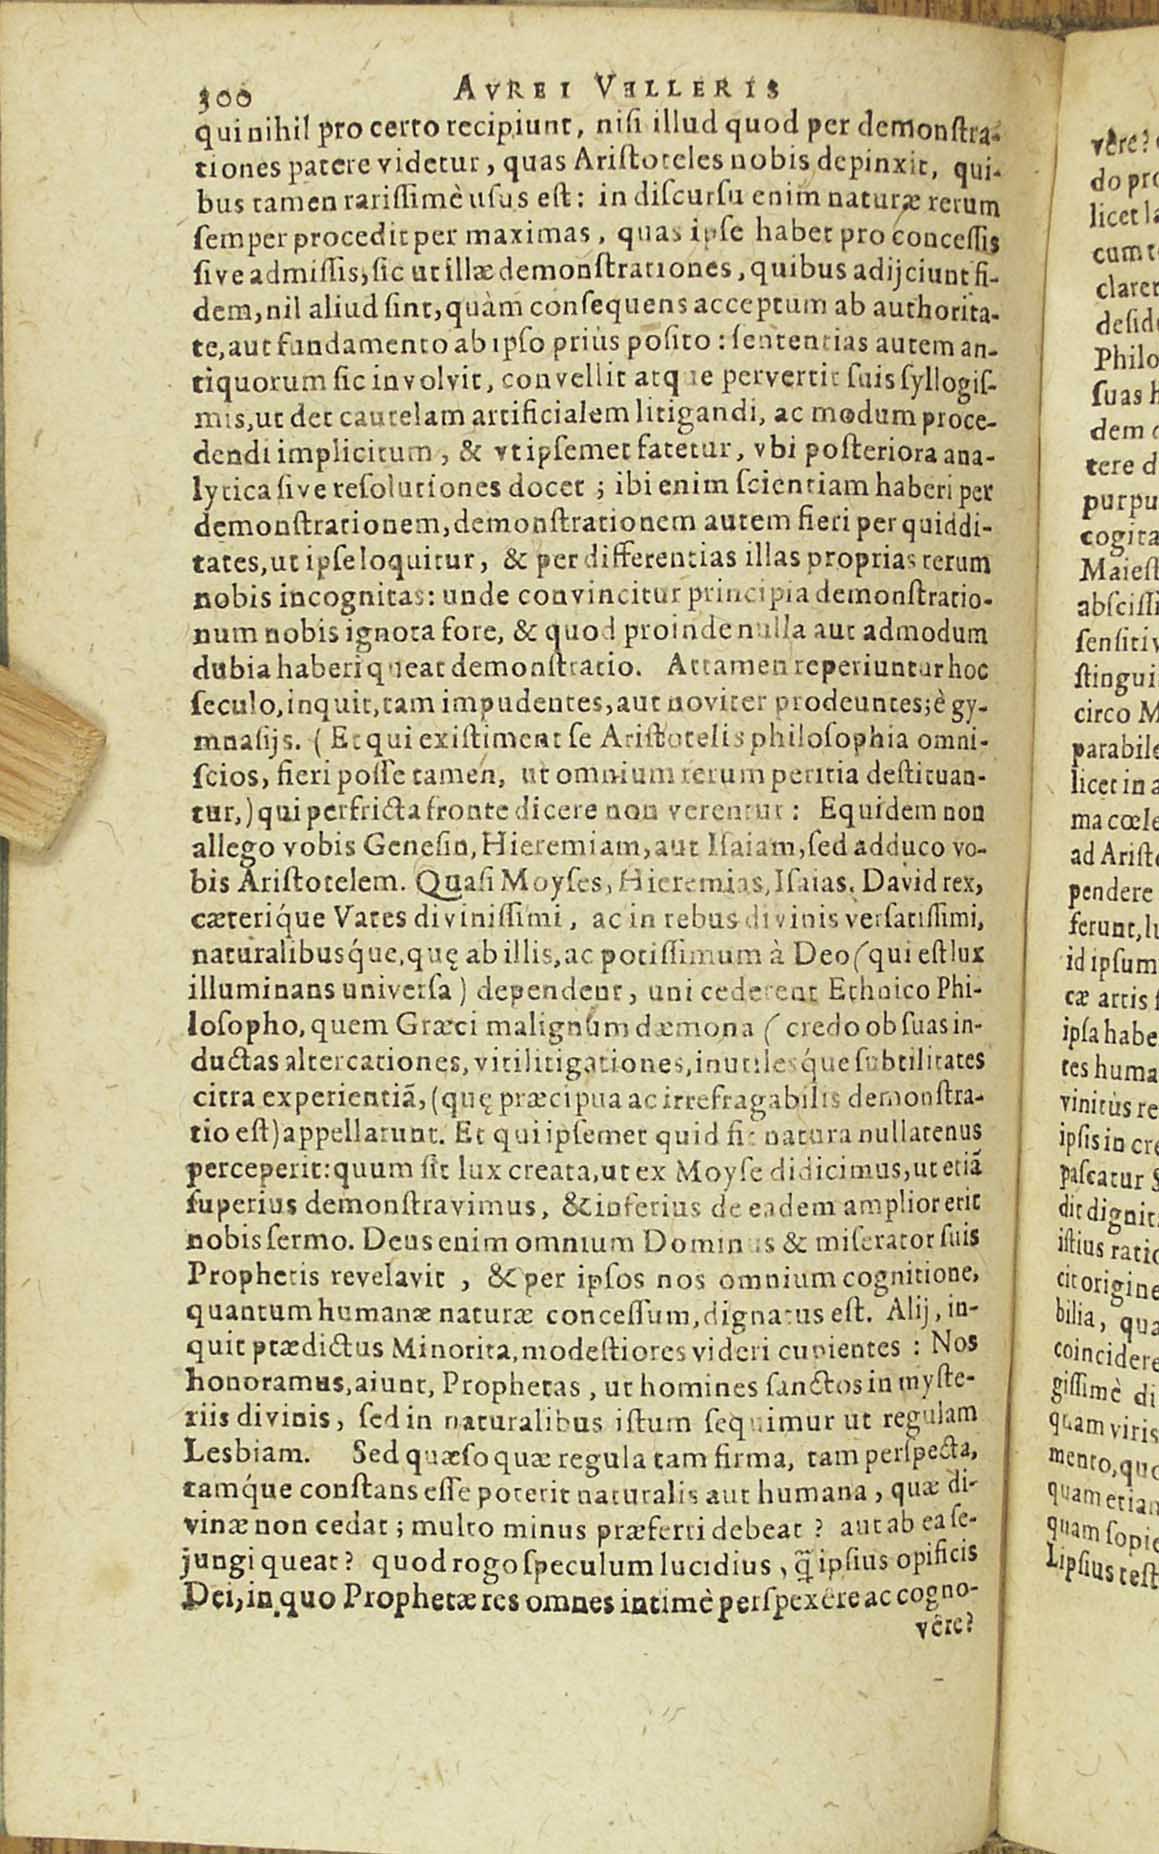 300 AVREI VELLERIS
qui nihil pro certo recipiunt, nisi illud quod per demonstra-
tiones patere videtur, quas Aristoteles nobis depinxit, qui-
bus tamen rarissimè usus est: in discursu enim naturæ rerum
semper procedit per maximas, quas ipse habet pro concessis
sive admissis, sic ut illæ demonstrationes, quibus adijciunt fi-
dem, nil aliud sint, quàm consequens acceptum ab authorita-
te, aut fundamento ab ipso priùs posito: sententias autem an-
tiquorum sic involvit, convellit atque pervertit suis syllogis-
mis, ut det cautelam artificialem litigandi, ac modum proce-
dendi implicitum, & vt ipsemet fatetur, vbi posteriora ana-
lytica sive resolutiones docet; ibi enim scientiam haberi per
demonstrationem, demonstrationem autem fieri per quiddi-
tates, ut ipse loquitur, & per differentias illas proprias rerum
nobis incognitas: unde convincitur principia demonstratio-
num nobis ignota fore, & quod proinde nulla aut admodum
dubia haberi queat demonstratio. Attamen reperiuntur hoc
seculo, inquit, tam impudentes, aut noviter prodeuntes; è gy-
mnasijs. (Et qui existiment se Aristotelis philosophia omni-
scios, fieri posse tamen, ut omnium rerum peritia destituan-
tur,) qui perfricta fronte dicere non verentur: Equidem non
allego vobis Genesin, Hieremiam, aut Isaiam, sed adduco vo-
bis Aristotelem. Quasi Moyses, Hieremias, Isaias, David rex,
cæteriq́ue Vates divinissimi, ac in rebus divinis versatissimi,
naturalibusq́ue, quę ab illis, ac potissimum à Deo (qui est lux
illuminans universa) dependent, uni cederent Ethnico Phi-
losopho, quem Græci malignum dæmona (credo ob suas in-
ductas altercationes, vitilitigationes, inutilesq́ue subtilitates
citra experientiã, (quę præcipua ac irrefragabilis demonstra-
tio est) appellarunt. Et qui ipsemet quid sit natura nullatenus
perceperit: quum sit lux creata, ut ex Moyse didicimus, ut etiã
superius demonstravimus, & inferius de eadem amplior erit
nobis sermo. Deus enim omnium Dominus & miserator suis
Prophetis revelavit, & per ipsos nos omnium cognitione,
quantum humanæ naturæ concessum, dignatus est. Alij, in-
quit prædictus Minorita, modestiores videri cupientes: Nos
honoramus, aiunt, Prophetas, ut homines sanctos in myste-
riis divinis, sed in naturalibus istum sequimur ut regulam
Lesbiam. Sed quæso quæ regula tam firma, tam perspecta,
tamq́ue constans esse poterit naturalis aut humana, quæ di-
vinæ non cedat; multo minus præferri debeat? aut ab ea se-
jungi queat? quod rogo speculum lucidius, q̃ ipsius opificis
Dei, in quo Prophetæ res omnes intimè perspexêre ac cogno-
vêre?
vêre?
do pro
licet la
cum t
claret
desid
Philo
suas h
dem
tere d
purpu
cogita
Maiest
absciss
sensitiv
stingui
circo M
parabile
licet in a
ma cœle
ad Aristo
pendere
ferunt, lu
id ipsum
cæ artis s
ipsa habe
tes huma
vinitùs re
ipsis in cre
pascatur S
dit dignit
istius ratio
cit origine
bilia, qua
coincidere
gissimè di
quam viris
mento, quo
quam etiam
quam sopie
Lipsius test